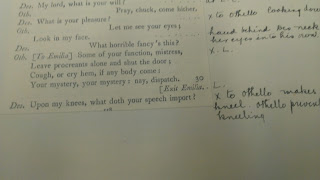 Des. My lord, what is your will?
Oth. Pray, chuck, come hither.
Des. What is your pleasure?
Oth. Let me see your eyes;
Look in my face.
Des. What horrible fancy's this?
Oth. [To Emilia] Some of your function, mistress,
Leave procreants alone and shut the door;
Cough, or cry hem, if any body come:
Your mystery, your mystery: nay, dispatch. 30
[Exit Emilia.
Des. Upon my knees, what doth your speech import?
x to Othello looking
hand behind Des neck
her eyes into his own.
X. L.
L.
x to Othello makes
kneel Othello prevent
kneeling